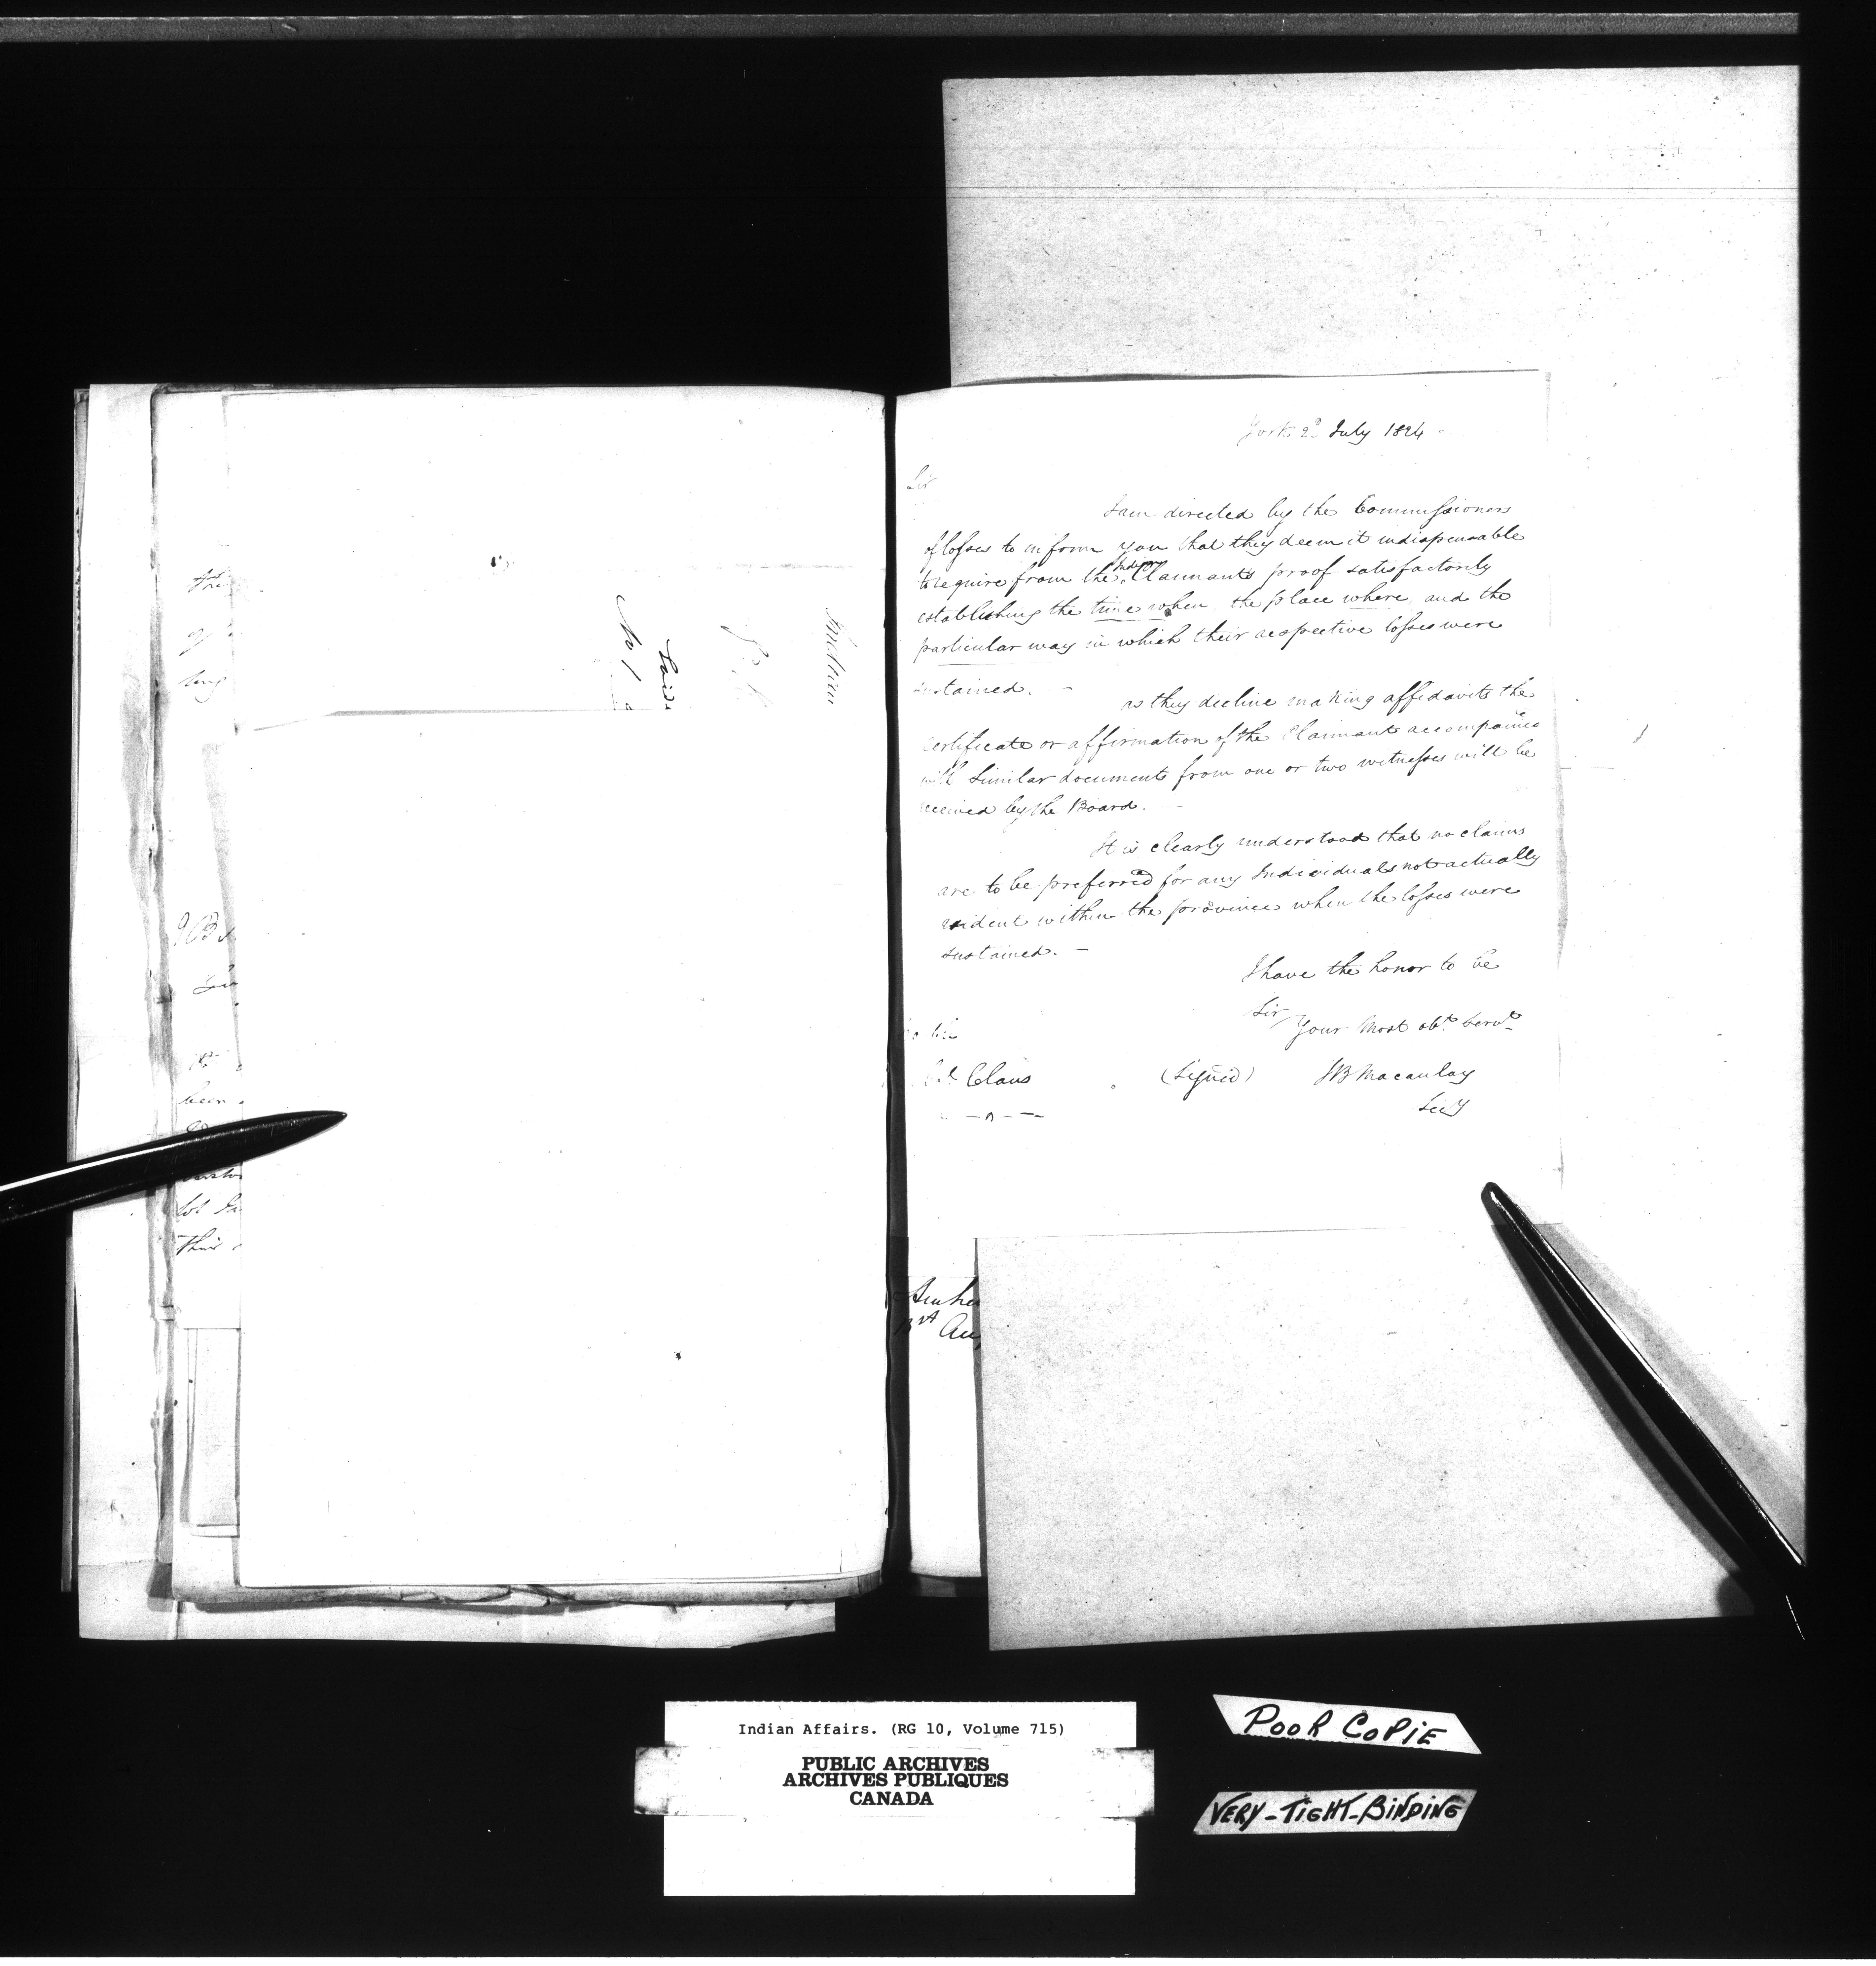 York 2d July 1824
Sir
I am directed by the Commissioners
of losses to inform you that they deem it indispensable
to require from the Indian Claimants proof satisfactorily
establishing the time when, the place where, and the
particular way in which their respective losses were
sustained. -
as they decline making affidavits the
certificate or affirmation of the Claimant accompanied
with Similar documents from one or two witnesses will be
received by the Board.
It is clearly understood that no claims
are to be preferred for any Individuals not actually
resident within the province when the losses were
sustained. -
I have the honor to be
Sir
Your Most obt. Servt.
Col. Claus
(Signed) JB Macaulay
Secy
No 1
Indian
been
Indian Affairs. (RG 10, Volume 715)
PUBLIC ARCHIVES
ARCHIVES PUBLIQUES
CANADA
POOR COPIE
VERY-TIGHT-BINDING